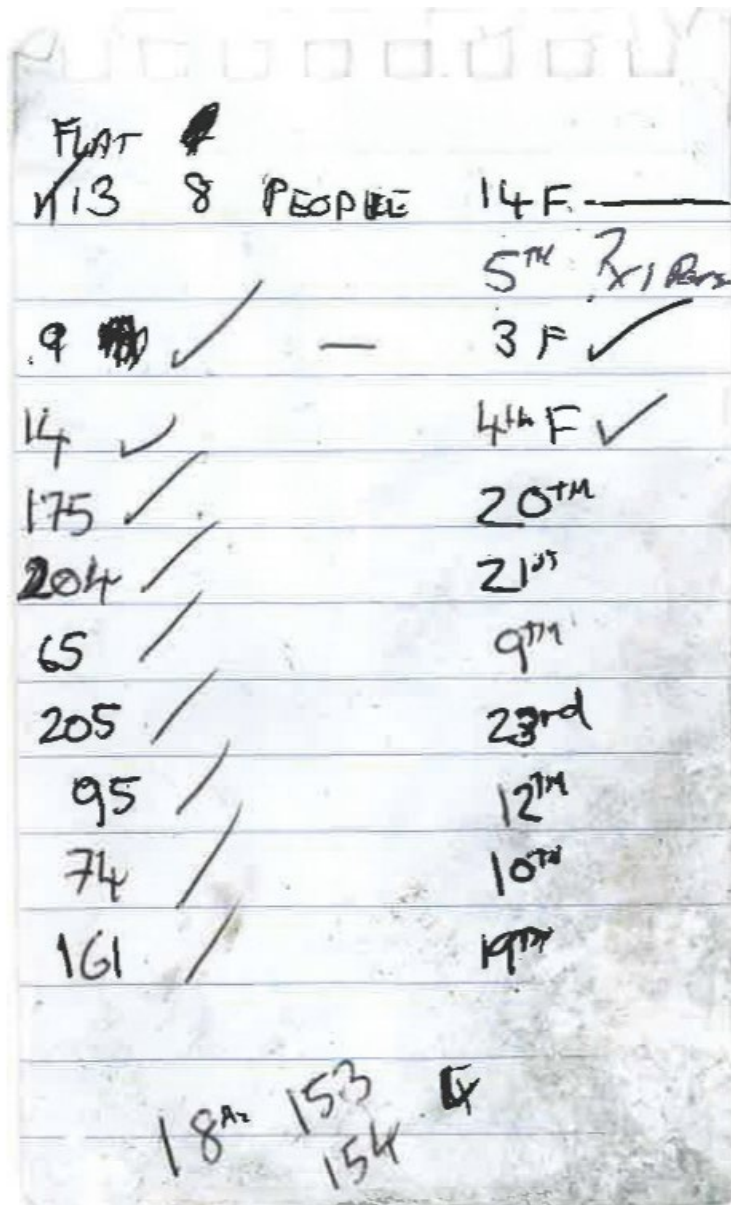 FLAT
113 8 PEOPLE 14 F.
5TH ? X1 Pers
9 — 3 F ✓
14 ✓ 4th F ✓
175 20TH
204 21st
65 9TH
205 23rd
95 12TH
74 10TH
161 19TH
18 153
154